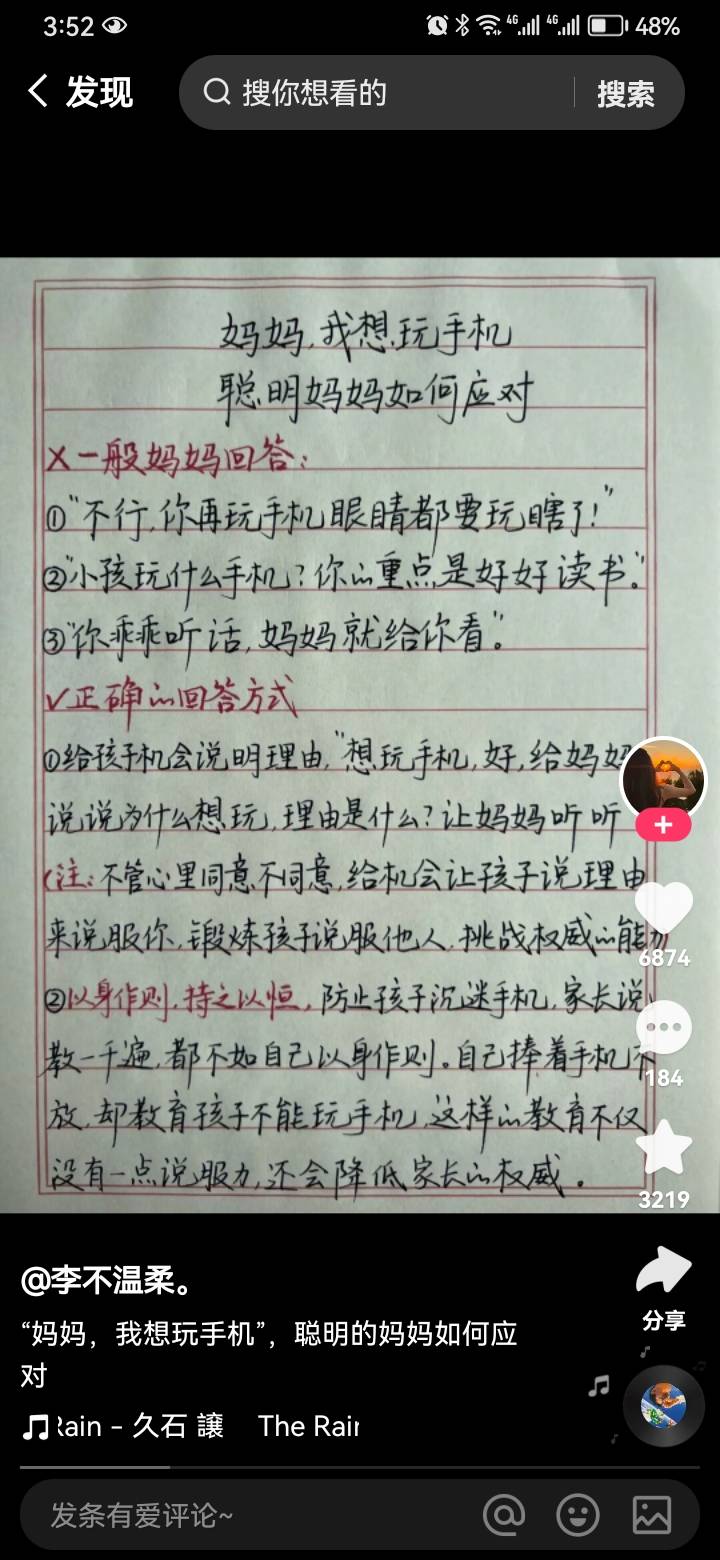 3:52
4G 4G 48%
发现
搜你想看的
搜索
妈妈,我想玩手机
聪明妈妈如何应对
X一般妈妈回答:
①“不行,你再玩手机眼睛都要玩瞎了!”
②“小孩玩什么手机?你的重点是好好读书。”
③“你乖乖听话,妈妈就给你看”。
√正确的回答方式
①给孩子机会说明理由,“想玩手机,好,给妈妈
说说为什么想玩,理由是什么?让妈妈听听
(注:不管心里同意不同意,给机会让孩子说理由
来说服你,锻炼孩子说服他人,挑战权威的能力
②以身作则,持之以恒,防止孩子沉迷手机,家长说
教一千遍,都不如自己以身作则。自己捧着手机不
放,却教育孩子不能玩手机,这样的教育不仅
没有一点说服力,还会降低家长的权威。
6874
184
3219
分享
@李不温柔。
“妈妈,我想玩手机”,聪明的妈妈如何应
对
Rain - 久石 譲 The Rain
发条有爱评论~